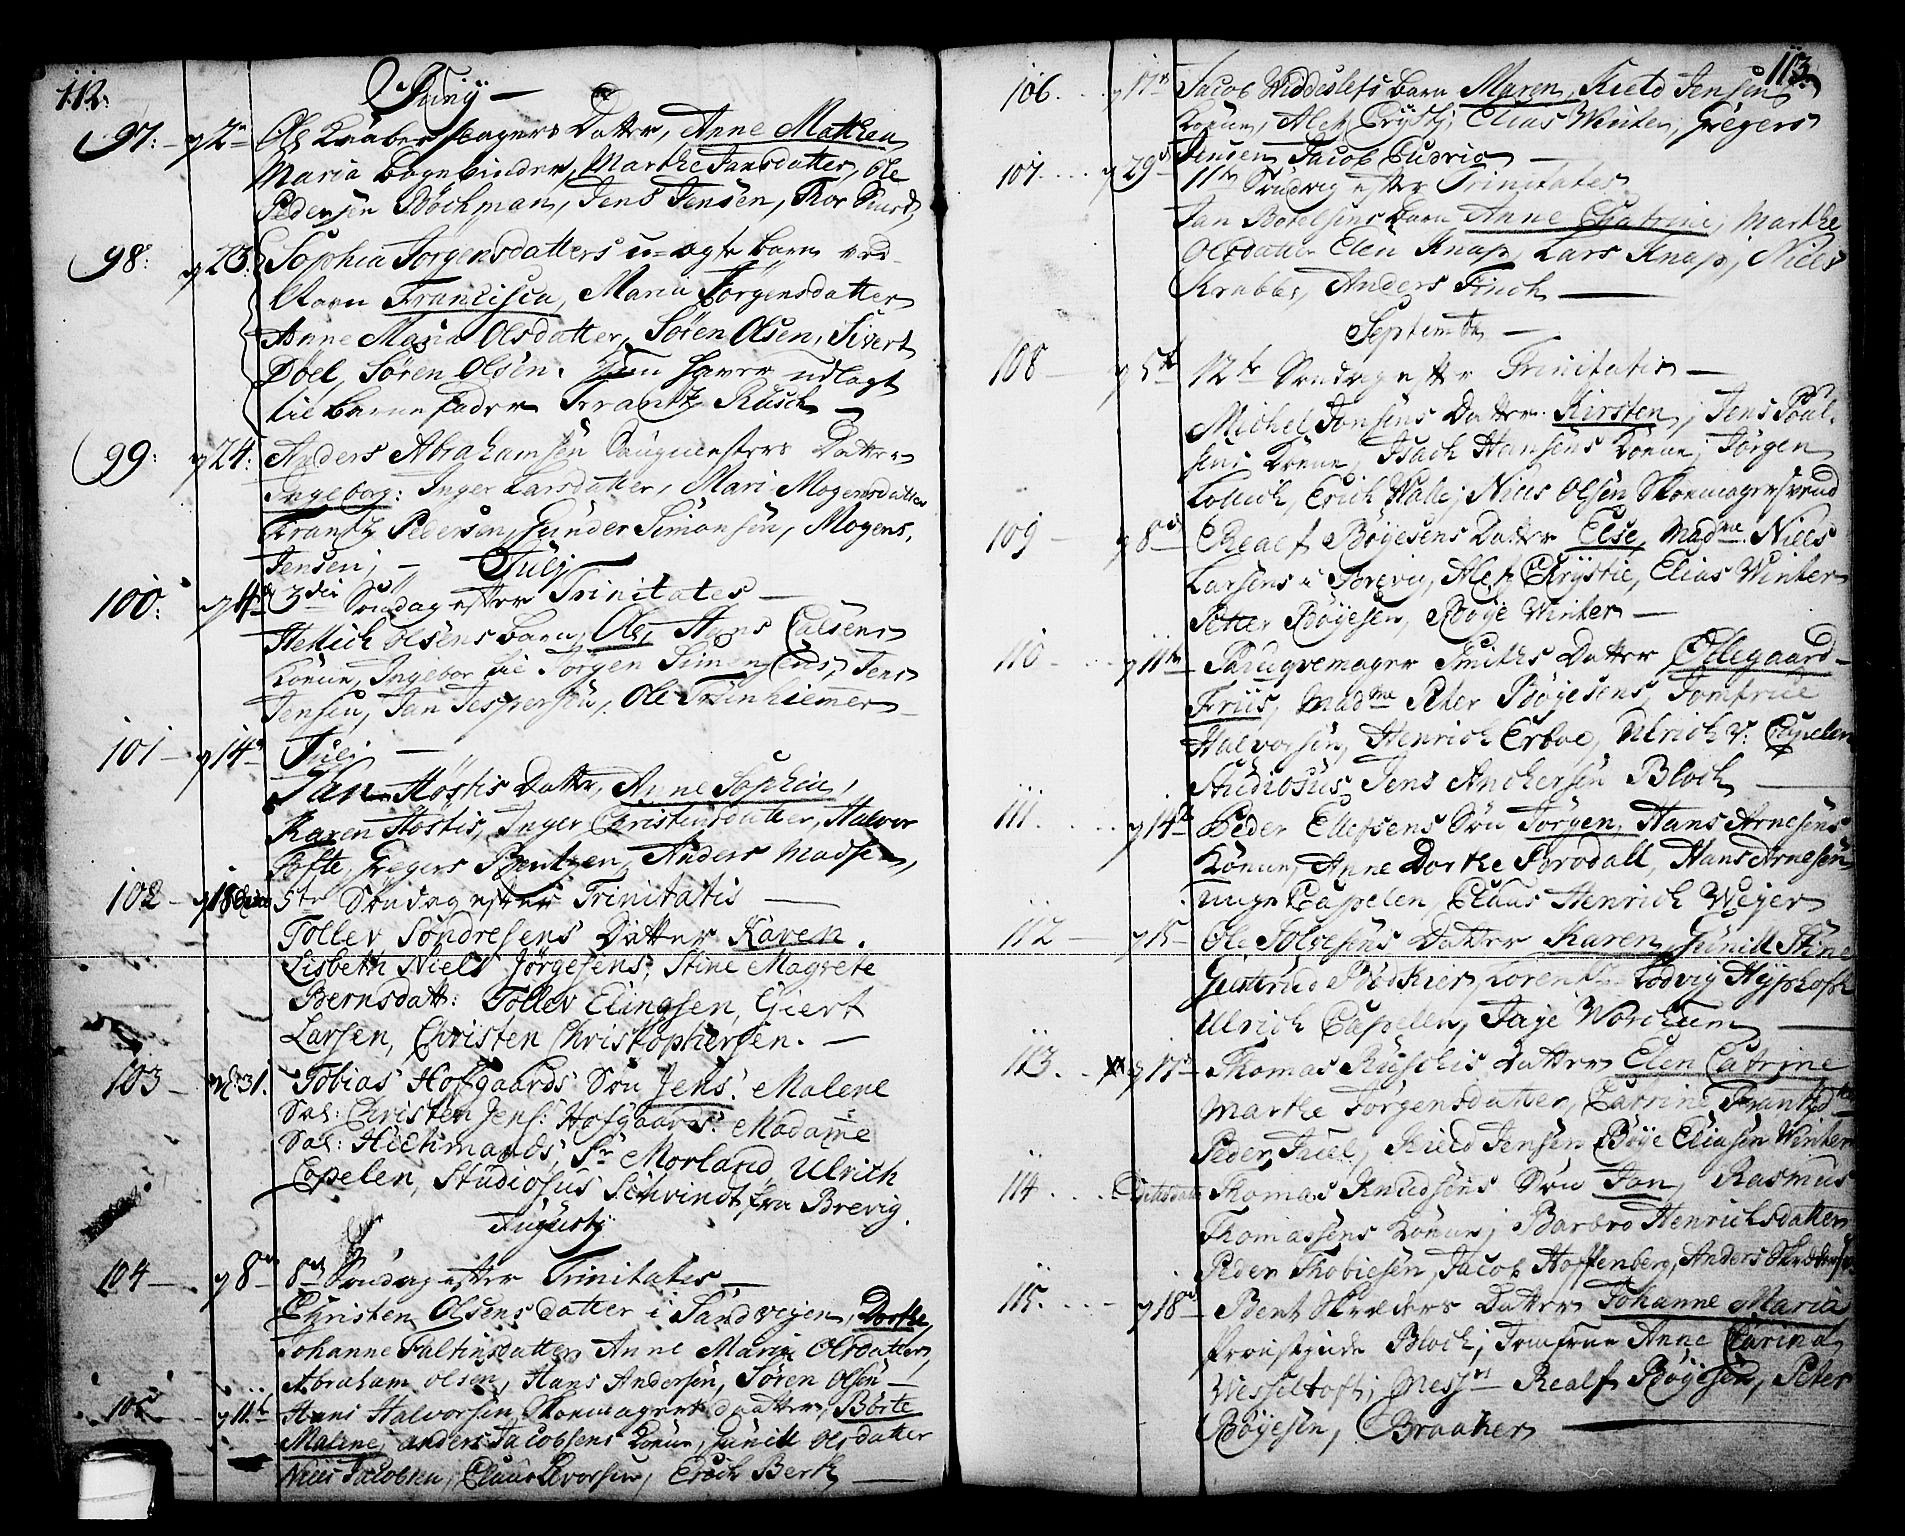 112.
Juny —
97. — d 2den Ole Kraaber Datter, Anne Mathea
Maria Bogebinder, Marthe Jansdatter, Ole
Pedersen Bøchman, Jens Jensen, Thor
98. d 23. Sophia Jørgensdatters u-ægte barn ved
Navn Francisca, Maria Jørgensdatter
Anne Maria Olsdatter, Søren Olsen, Sivert
Døel, Søren Olsen. Hun haver udlagt
til Barne fader Frantz Rusch —
99. d 24. Anders Abrahamsen Saugmesters Datter
Ingeborg: Inger Larsdatter, Mari Mogensdatter
Frantz Pedersen, Gunder Simonsen, Mogens
Jensen, — Julj
100. d 4de 3die Søndag efter Trinitates —
Hellich Olsens barn, Ole, Hans Calsens
Konne, Ingebor Jørgen Simen Jens
Jensen, Jan Jespersen, Ole Trønhiemer
101 — d 14de Juli —
Jan Høstis Datter, Anne Sophia,
Karen Høstis, Inger Christensdatter, Halvor
Tofte, Gregers Bentzen, Anders Madsen,
102 — d 18den 5te Søndag efter Trinitatis —
Tollev Søndresens Datter Karen.
Lisbeth Niels Jørgesens, Stine Magrete
Bernsdatt: Tollev Elingsen, Giert
Larsen, Christen Christophersen. —
103 — d. 31. Tobias Hofgaards Søn Jens. Malene
Sal: Christen Jens: Hofgaards. Madame
Sal: Hichmands, Sr Morland, Ulrich
Copelen, Studiosus Schvindt fra Brevig.
Augusty
104 — d 8de 8de Søndag efter Trinitates —
Christen Olsens datter i Sandvejen, Dorthe
Johanne Faltinsdatter, Anne Maria Olsdatter,
Abraham Olsen, Hans Andersen, Søren Olsen —
105 d 11te Hans Halvorsen Skoemagers daatter, Børte
Malene, anders Jacobsens Konne, Gunild Olsdatter
Niels Jacobsen, Claus Evorsen, Erich Berth —
113.
106. . . . d 17de Jacob Widdeslefs barn Maren, Kield Jensens
Konne, Alet Crysty, Elias Winter, Gregers
Jensen, Jacob Ludvig —
107. . . . d 29de 11te Søndag efter Trinitates.
Jan Botelsens barn Anne Chatrine, Marthe
Olsdatter Elen Knap, Lars Knap, Niels
Krabbe, Anders Finch —
Septembr —
108 — d 5te 12te Søndag efter Trinitatis —
Michel Jonsens Datter Kirsten, Jens Poul-
sens Konne, Isach Hansens Konne, Jørgen
Lollich, Erich Walle, Niels Olsen Skoemagersvend
109 — d 8de Realf Bøyesens Datter Else, Madme Niels
Larsens i Torevig, Alet Chrystie, Elias Winter
Petter Bøyesen, Bøye Winter —
110 — . . . d 11te Parugvemager Smiths Datter Ollegaard
Friis, Madme Peter Bøyesens, Jomfrue
Halvorsen, Henrich Erboe, Ulrich v. Capelen
Studiosus Jens Anchersen Bloch —
111. . . . . d 14de Peder Ellefsens Søn Jørgen, Hans Arnesens
Konne, Anne Dorthe Borodall, Hans Arnesen
unge Capelen, Claus Henrich Weyer
112 — d 15 — Ole Solvesens Datter Karen, Gunild Stine
Giertrud Bødkier, Lorentz Lodvig Hyphoft
Ulrich Capelen, Faye Worchum —
113. . . d 17de Thomas Ruschis Datter Elen Catrine
Marthe Jørgensdatter, Carrine Frantzdtter
Peder Juel, Kield Jensen Bøye Eliasen Winter
114. . . . Eodem dato Thomas Knudsens Søn Jan, Rasmus
Thomassens Konne, Barbro Henrichsdatter
Peder Thobiesen, Jacob Hoffenberg, Anders
115. . . . — d 18de Bent Skreders Datter Johanne Maria
Provstinde Bloch, Jomfrue Anne Carina
Wesseltoft, Messrs Realf Bøyesen, Peter
Bøyesen, Braaher —